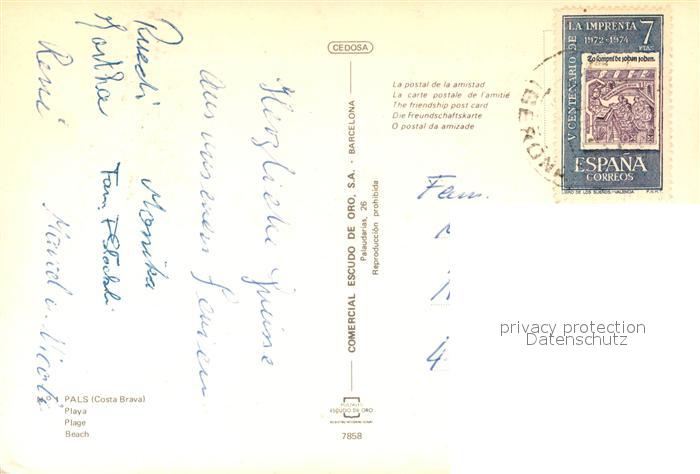 CEDOSA
V CENTENARIO DE LA IMPRENTA
1972-1974
7
PTAS
ESPAÑA
CORREOS
LIBRO DE LOS SUEÑOS.-VALENCIA
F.N.M.T.
La postal de la amistad
La carte postale de l'amitié
The friendship post card
Die Freundschaftskarte
O postal da amizade
COMERCIAL ESCUDO DE ORO, S.A. - BARCELONA
Palaudarias, 26
Reproducción prohibida
Herzliche Grüsse
aus unseren Ferien
Ruedi Monika
Martha
René Marcel u. Nicole
Fam.
4
privacy protection
Datenschutz
PALS (Costa Brava)
Playa
Plage
Beach
ESCUDO DE ORO
7858